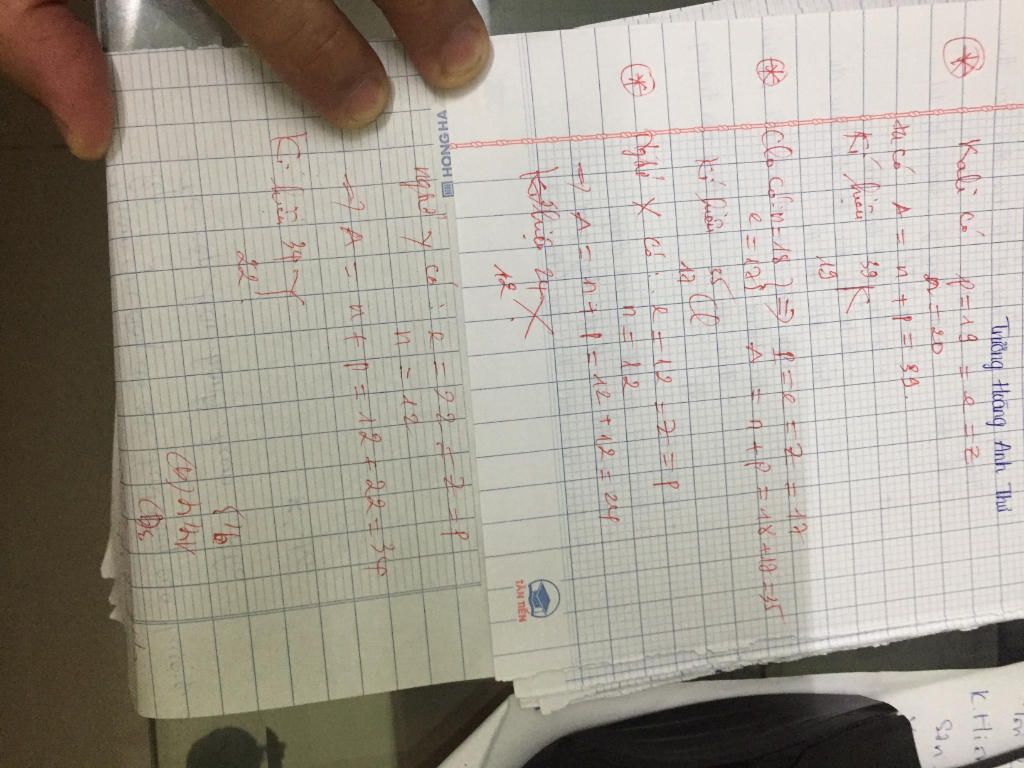 Tưởng Hoàng Anh Thư
Kali có p = 19 = e = Z
n = 20
có A = n + p = 39.
Kí hiệu 39 K
19
Clo có: n = 18 } => p = e = Z = 17
e = 17 A = n + p = 18 + 17 = 35
Kí hiệu 35 Cl
17
X có: e = 12 = Z = p
n = 12
=> A = n + p = 12 + 12 = 24
Kí hiệu 24 X
12
TÂN TIẾN
HONG HA
Y có: e = 22 = Z = p
n = 12
=> A = n + p = 12 + 22 = 34
Kí hiệu 34 Y
22
K. Hin